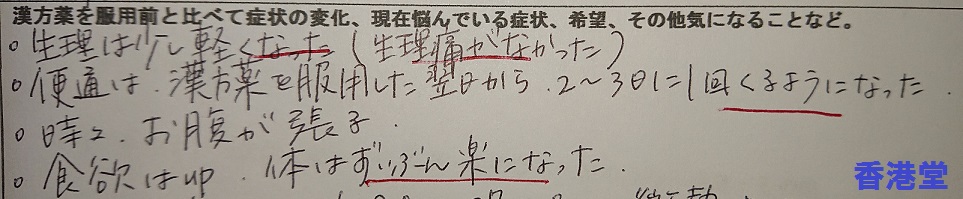 漢方薬を服用前と比べて症状の変化、現在悩んでいる症状、希望、その他気になることなど。
○生理は少し軽くなった(生理痛がなかった)
○便通は、漢方薬を服用した翌日から、2〜3日に1回くるようになった.
○時々、お腹が張る.
○食欲はup. 体はずいぶん楽になった.
香港堂